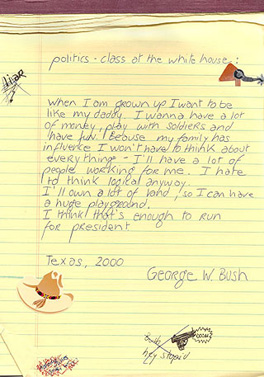 politics - class at the white house:
liar
When I am grown up I want to be
like my daddy. I wanna have a lot
of money, play with soldiers and
have fun. Becouse my family has
influence I won't have to think about
everything - I'll have a lot of
people working for me. I hate
to think logical anyway.
I'll own a lot of land, so I can have
a huge playground.
I think that's enough to run
for president
Texas, 2000
George W. Bush
hey stupid